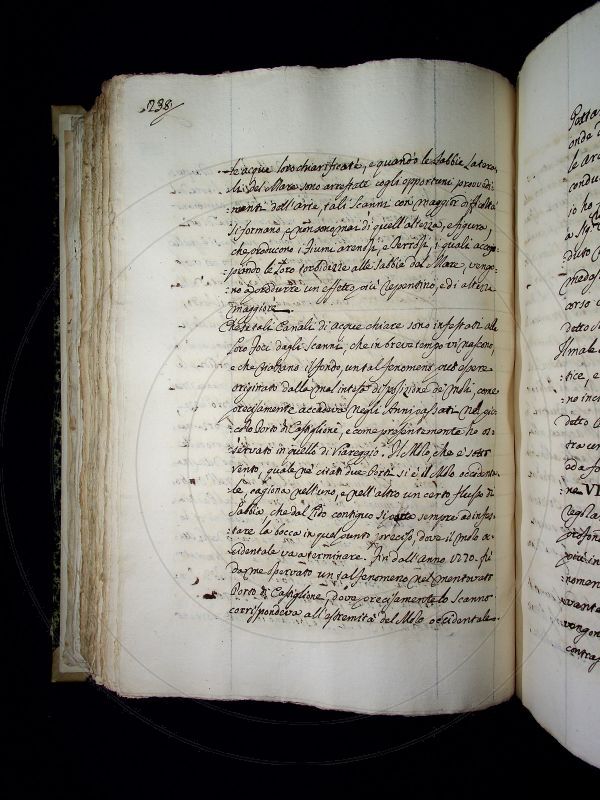 238
le acque loro chiarificate, e quando le Sabbie Latera-
li del Mare sono arrestate cogli opportuni provedi-
menti dell'arte, tali Scanni con maggior difficoltà
si formano, e non sono mai di quell'altezza, e figura,
che producono i Fiumi arenosi, e terrosi, i quali accop-
piando le Loro torbidezze alle Sabbie del Mare, vengo-
no a produrre un effetto più repentino, e di altezza
maggiore
Che se tali Canali di acque chiare sono infestati alle
loro foci dagli Scanni, che in breve tempo vi nascono,
e che rialzano il fondo, un tal fenomeno può essere
originato dalla mal intesa disposizione de' Moli, come
precisamente accadeva negli Anni passati nel pic-
colo Porto di Castiglione, e come presentemente ho os-
servato in quello di Viareggio. Il Molo, che è sotto
vento, quale ne' citati due Porti si è il Molo occidenta-
le, cagiona nell'uno, e nell'altro un certo flusso di
Sabbia, che dal Lido contiguo si porta sempre ad infes-
tare la bocca in quel punto preciso, dove il molo oc-
cidentale va a terminare. Fin dall'Anno 1770. fù
da me osservato un tal fenomeno nel mentovato
Porto di Castiglione, dove precisamente lo Scanno
corrispondeva all'estremità del Molo occidentale.